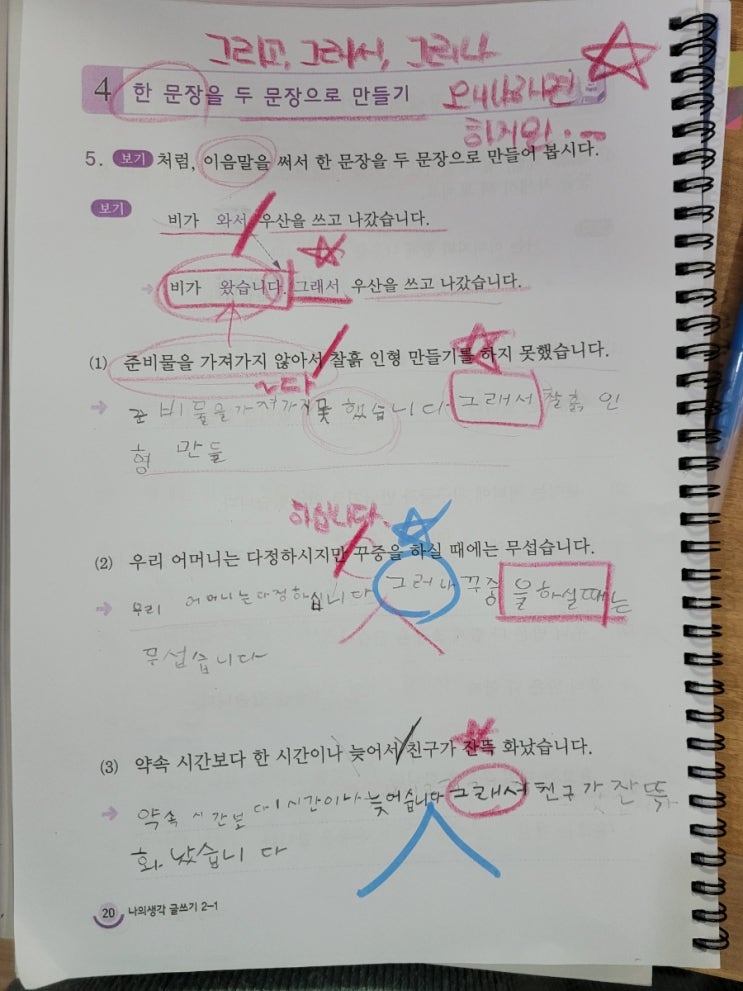 그리고, 그래서, 그러나
4 한 문장을 두 문장으로 만들기
왜냐하면
하지만...
5. 보기 처럼, 이음말을 써서 한 문장을 두 문장으로 만들어 봅시다.
보기
비가 와서 우산을 쓰고 나갔습니다.
비가 왔습니다. 그래서 우산을 쓰고 나갔습니다.
(1) 준비물을 가져가지 않아서 찰흙 인형 만들기를 하지 못했습니다.
~다
준비물을가져가지못했습니다. 그래서 찰흙 인
형 만들
하십니다.
(2) 우리 어머니는 다정하시지만 꾸중을 하실 때에는 무섭습니다.
우리 어머니는다정하십니다 그러나 꾸중을하실때는
무섭습니다
(3) 약속 시간보다 한 시간이나 늦어서 친구가 잔뜩 화났습니다.
약속 시간보다 1시간이나 늦어습니다 그래서 친구가 잔뜩
화났습니다
20 나의생각 글쓰기 2-1